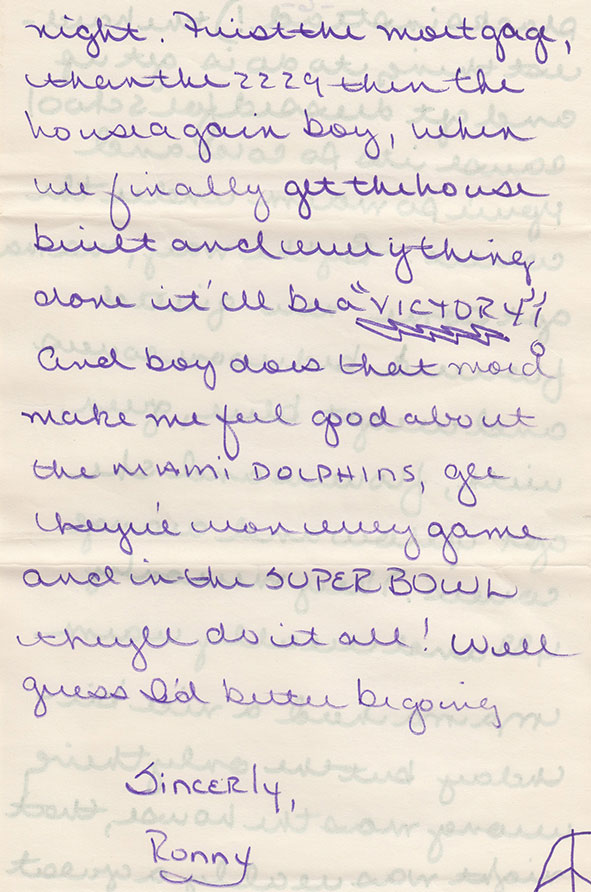 night. First the mortgage,
than the 2229 then the
house again boy, when
we finally get the house
built and everything
done it'll be a "VICTORY"!
And boy does that word
make me feel good about
the MIAMI DOLPHINS, gee
they've won every game
and in the SUPER BOWL
they'll do it all! Well
guess I'd better be going
Sincerly,
Ronny